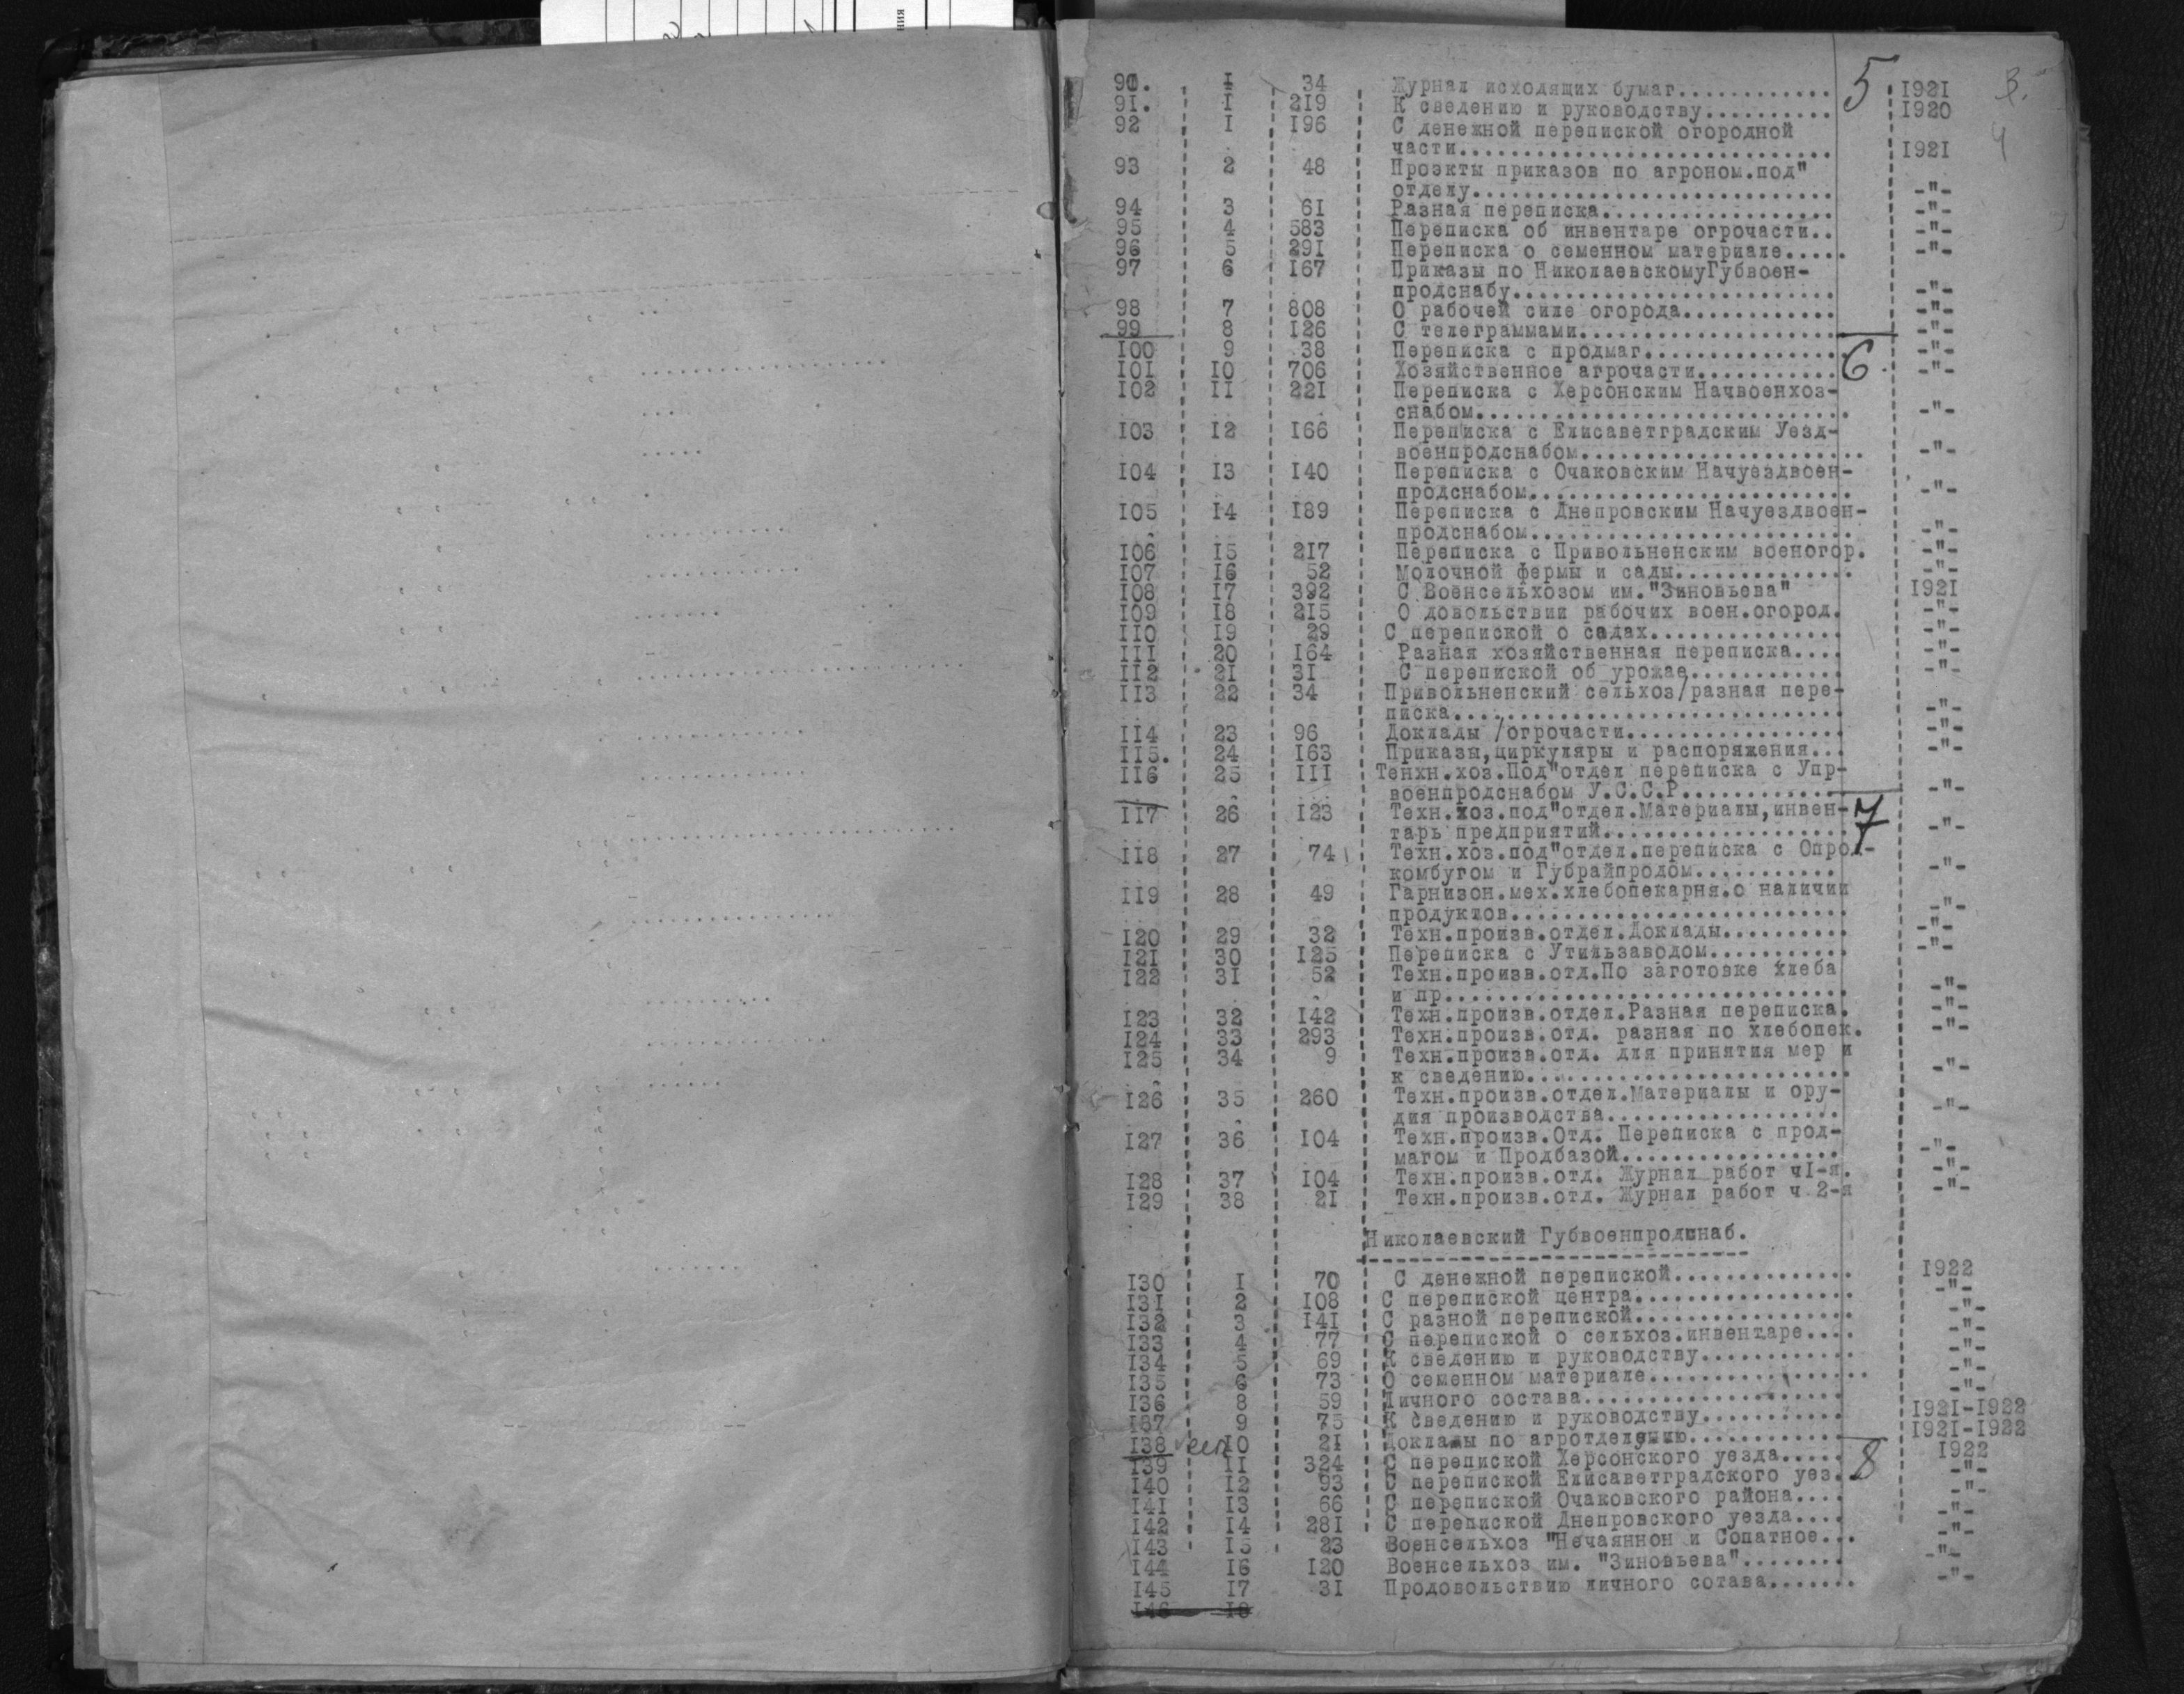 90. I 34 Журнал исходящих бумаг............ 5 I92I 3.
9I. I 2I9 К сведению и руководству.......... I920
92 I I96 С денежной перепиской огородной 4
части............................. I92I
93 2 48 Проэкты приказов по агроном.под"
отделу............................ -"-
94 3 6I Разная переписка.................. -"-
95 4 583 Переписка об инвентаре огрочасти.. -"-
96 5 29I Переписка о семенном материале..... -"-
97 6 I67 Приказы по НиколаевскомуГубвоен-
продснабу......................... -"-
98 7 808 О рабочей силе огорода............ -"-
99 8 I26 С телеграммами.................... -"-
I00 9 38 Переписка с продмаг............... -"-
I0I I0 706 Хозяйственное агрочасти........... 6. -"-
I02 II 22I Переписка с Херсонским Начвоенхоз-
снабом............................. -"-
I03 I2 I66 Переписка с Елисаветградским Уезд-
военпродснабом...................... -"-
I04 I3 I40 Переписка с Очаковским Начуездвоен-
продснабом......................... -"-
I05 I4 I89 Переписка с Днепровским Начуездвоен-
продснабом......................... -"-
I06 I5 2I7 Переписка с Привольненским военогор. -"-
I07 I6 52 Молочной фермы и сады.............. -"-
I08 I7 392 С Военсельхозом им."Зиновьева" I92I
I09 I8 2I5 О довольствии рабочих воен.огород. -"-
II0 I9 29 С перепиской о садах............... -"-
III 20 I64 Разная хозяйственная переписка.... -"-
II2 2I 3I С перепиской об урожае............ -"-
II3 22 34 Привольненский сельхоз/разная пере-
писка.............................. -"-
II4 23 96 Доклады /огрочасти................. -"-
II5. 24 I63 Приказы,циркуляры и распоряжения... -"-
II6 25 III Тенхн.хоз.Под"отдел переписка с Упр-
военпродснабом У.С.С.Р............. -"-
II7 26 I23 Техн.хоз.под"отдел.Материалы,инвен- 7
тарь предприятий................... -"-
II8 27 74 Техн.хоз.под"отдел.переписка с Опрод-
комбугом и Губрайпродом........... -"-
II9 28 49 Гарнизон.мех.хлебопекарня.о наличии
продуктов.......................... -"-
I20 29 32 Техн.произв.отдел.Доклады.......... -"-
I2I 30 I25 Переписка с Утильзаводом........... -"-
I22 3I 52 Техн.произв.отд.По заготовке хлеба
и пр............................... -"-
I23 32 I42 Техн.произв.отдел.Разная переписка. -"-
I24 33 293 Техн.произв.отд. разная по хлебопек. -"-
I25 34 9 Техн.произв.отд. для принятия мер и
к сведению......................... -"-
I26 35 260 Техн.произв.отдел.Материалы и ору-
дия производства.................. -"-
I27 36 I04 Техн.произв.Отд. Переписка с прод-
магом и Продбазой................. -"-
I28 37 I04 Техн.произв.отд. Журнал работ чI-я. -"-
I29 38 2I Техн.произв.отд. Журнал работ ч 2-я -"-
Николаевский Губвоенпродснаб.
I30 I 70 С денежной перепиской.............. I922
I3I 2 I08 С перепиской центра................. -"-
I32 3 I4I С разной перепиской................. -"-
I33 4 77 С перепиской о сельхоз.инвентаре.... -"-
I34 5 69 К сведению и руководству............ -"-
I35 6 73 О семенном материале................. -"-
I36 8 59 Личного состава.................... -"-
I37 9 75 К сведению и руководству........... I92I-I922
I38 I0 2I Доклады по агротделению............ I92I-I922
I39 II 324 С перепиской Херсонского уезда..... 8 I922
I40 I2 93 С перепиской Елисаветградского уез. -"-
I4I I3 66 С перепиской Очаковского района.... -"-
I42 I4 28I С перепиской Днепровского уезда.... -"-
I43 I5 23 Военсельхоз "Нечаяннон и Сопатное... -"-
I44 I6 I20 Военсельхоз им. "Зиновьева"........ -"-
I45 I7 3I Продовольствию личного сотава....... -"-
I46 I8